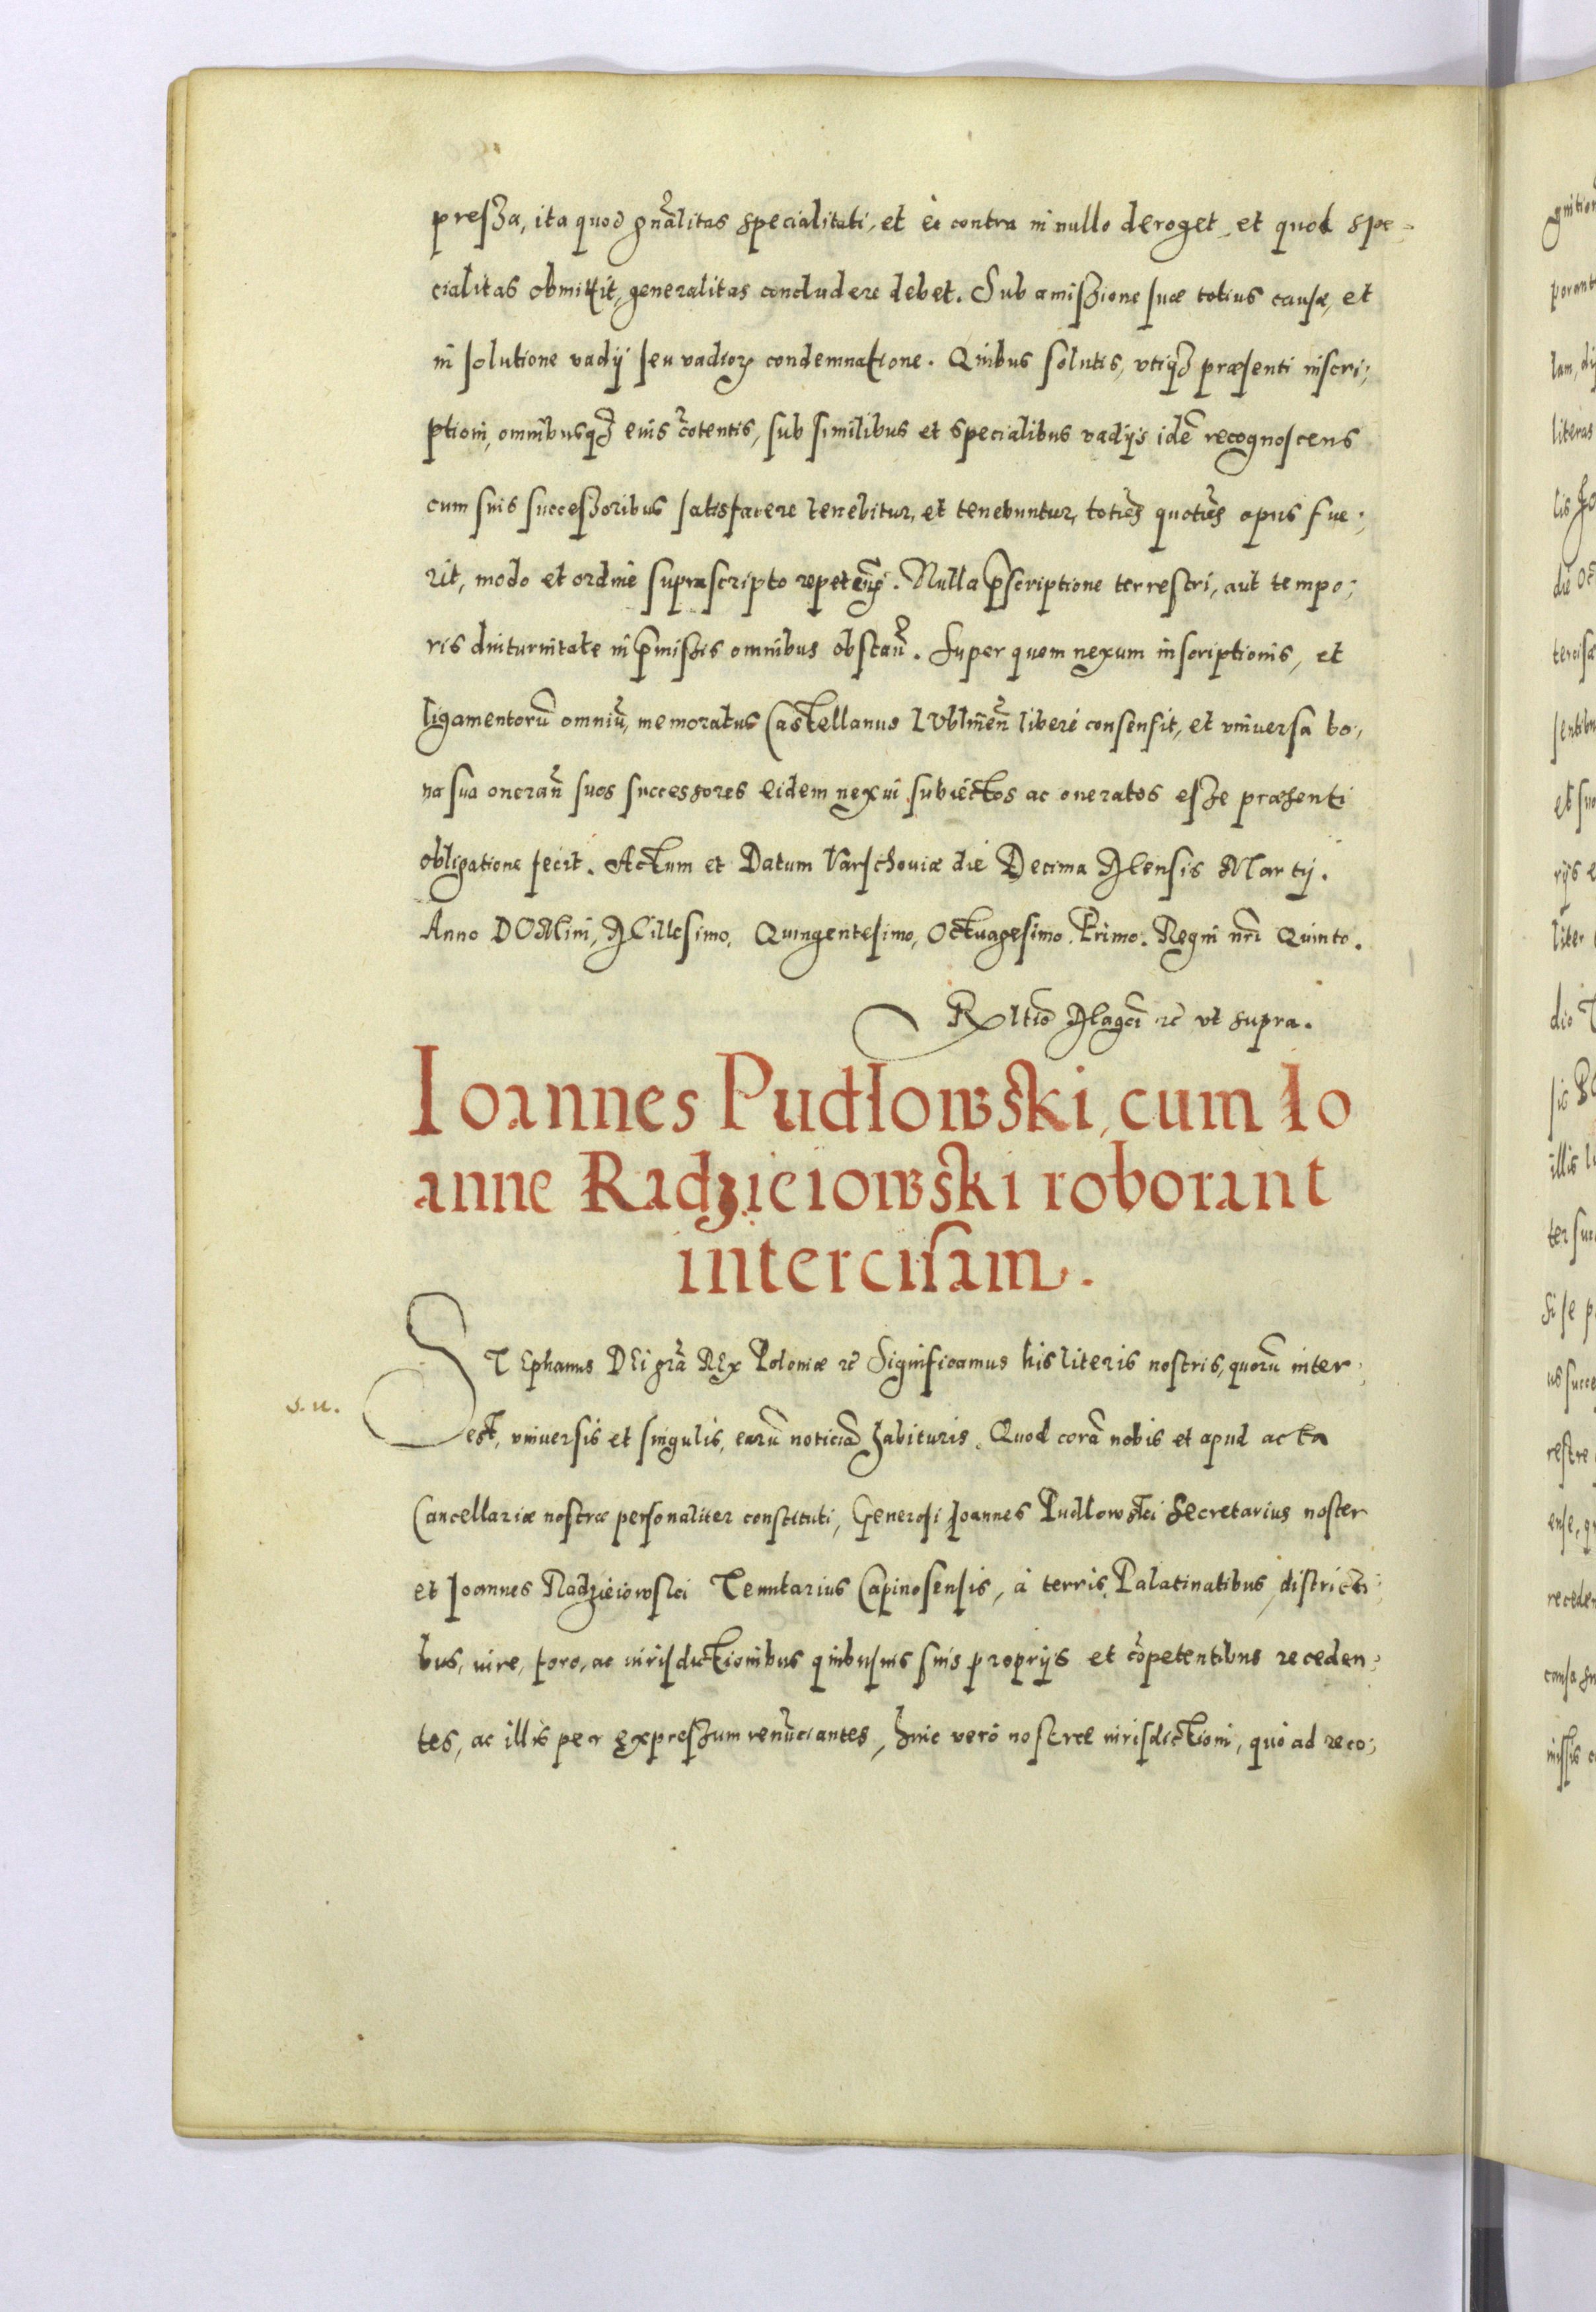 preſsa, ita quod gñalitas specialitati, et è contra in nullo deroget, et quod spe-
cialitas obmittit, generalitas concludere debet. Sub amiſsione ſuæ totius cauſæ, et
in ſolutione vadij ſeu vadioꝝ condemnatione. Quibus ſolutis, vtiqꝫ præſenti inscri;
ptioni, omnibusqꝫ eius cōtentis, ſub ſimilibus et specialibus vadijs idē recognoſcens
cum ſuis ſucceſsoribus ſatisfacere tenebitur, et tenebuntur, toties quoties opus fue;
rit, modo et ordine ſuprascripto repeteñ. Nulla p̄ſcriptione terreſtri, aut tempo;
ris diuturnitate in p̄miſsis omnibus obſtañ. Super quem nexum inſcriptionis, et
ligamentorū omniū, memoratus Castellanus LVblineñ liberè conſenſit, et vniuerſa bo;
na ſua onerañ ſuos ſuccessores eidem nexui ſubiectos ac oneratos eſse præsenti
obligatione fecit. Actum et Datum Varſchouiæ die Decima Menſis Martij.
Anno DOMini, Milleſimo, Quingenteſimo, Octuageſimo Primo. Regni nr̄i Quinto.
Rltio Magci ꝛc̄ vt supra.
Ioannes Pudłowski, cum Io
anne Radzieiowski roborant
interciſam.
STEphanus DEi gr̄a REx Poloniæ ꝛc̄ Significamus his literis noſtris, quorū inter;
s. u.
est, vniuerſis et ſingulis, earū noticiā habituris. Quod corā nobis et apud acta
Cancellariæ noſtræ perſonaliter conſtituti, Generoſi Joannes Pudlowski Secretarius noſter
et Joannes Radzieiowſki Tenutarius Capinoſenſis, à terris, Palatinatibus, diſtricti;
bus, iure, foro, ac iuriſdictionibus quibusuis ſuis proprijs et cōpetentibus receden;
tes, ac illis per expreſsum renūciantes, huic verò noſtræ iuriſdictioni, quò ad reco;